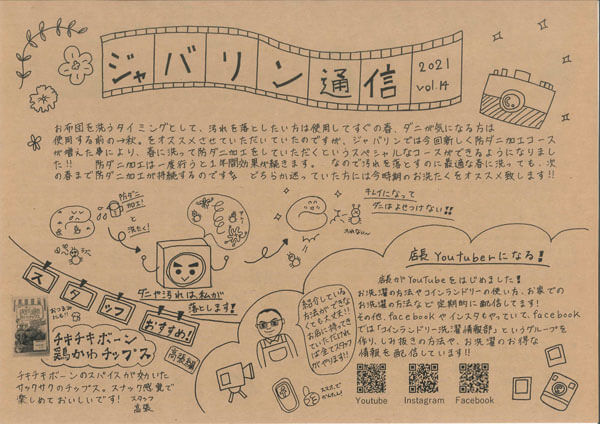 ジャバリン通信
2021
vol.14
お布団を洗うタイミングとして、汚れを落としたい方は使用してすぐの春、ダニが気になる方は
使用する前の→秋。をオススメさせていただいていたのですが、ジャバリンでは今回新しく防ダニ加工コース
が増えた事により、春に洗って防ダニ加工をしていただくというスペシャルなコースができるようになりまし
た!! 防ダニ加工は一度行うと1年間効果が続きます。なので汚れを落とすのに最適な春に洗っても、次
の春まで防ダニ加工が持続するのです どちらか迷っていた方には今時期のお洗たくをオススメ致します!!
防ダニ
加工!
と
洗たく!
キレイになって
ダニはよせつけない!!
ダニや汚れは私が
落とします!
スタッフおすすめ!
高張編
チキチキボーン
鶏かわチップス
チキチキボーンのスパイスが効いた
サックサクのチップス。スナック感覚で
楽しめておいしいです!
スタッフ
高張
店長 Youtuberになる!
店長がYouTubeをはじめました!
お洗濯の方法やコインランドリーの使い方、お家での
お洗濯の方法など定期的に配信してます!
その他、facebookやインスタもやっていて、facebook
では「コインランドリー洗濯情報部」というグループを
作り、しみ抜きの方法や、お洗濯のお得な
情報を配信しています!!
紹介している
方法ができな
くても大丈夫!!
お店に持ってき
ていただければ
全てスタッフ
がやります!!
Youtube
Instagram
Facebook